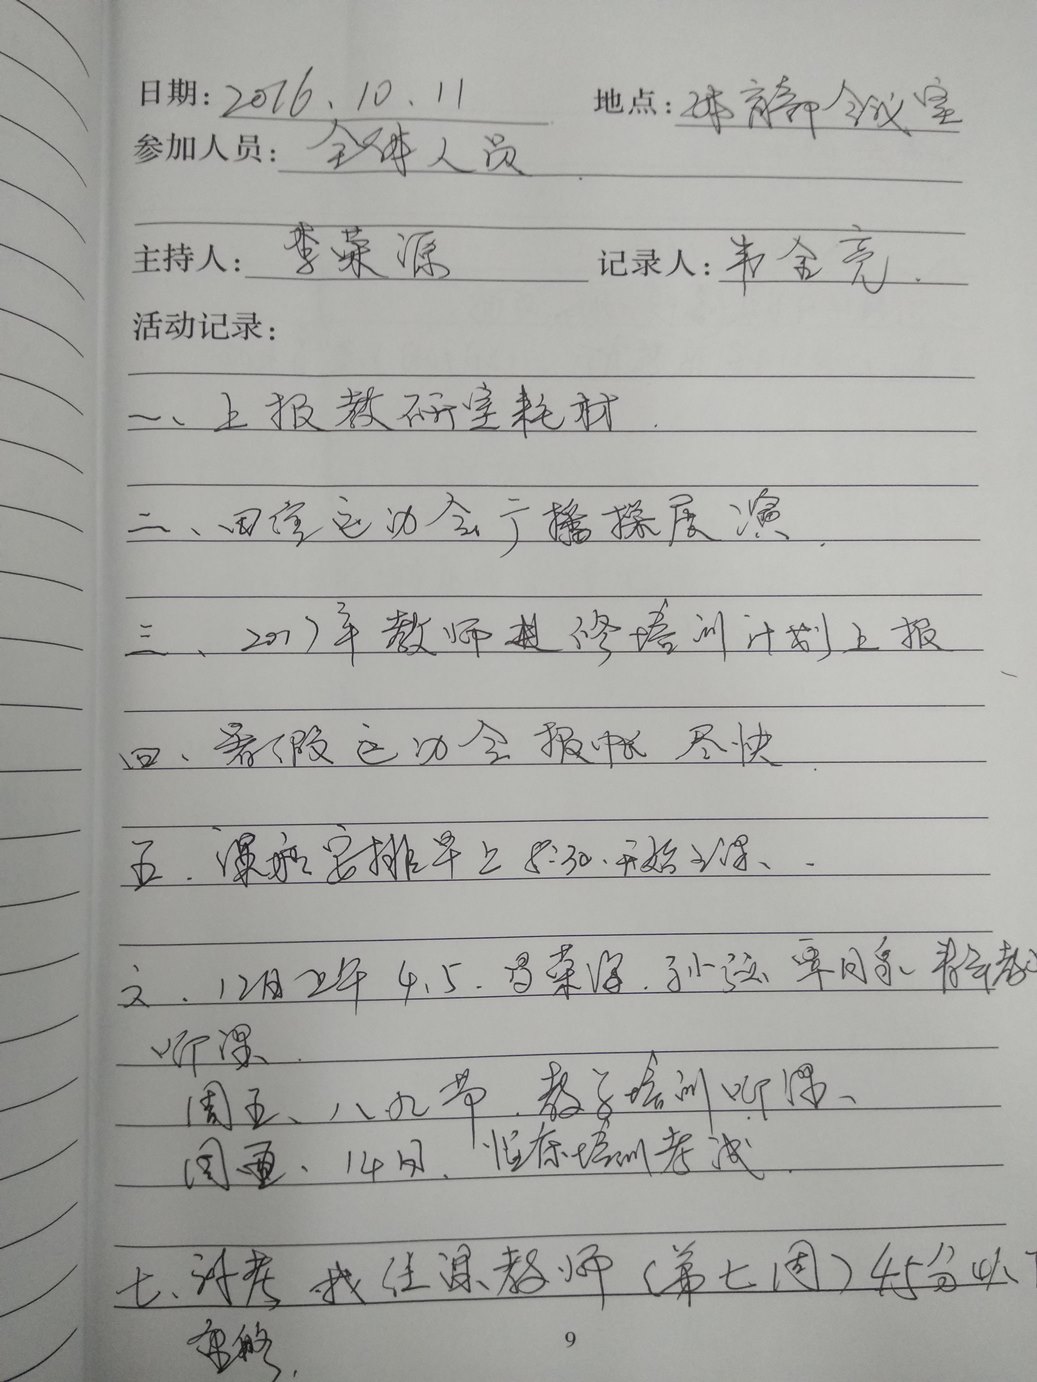 日期: 2016.10.11 地点: 体育部会议室
参加人员: 全体人员
主持人: 李荣源 记录人: 韦金亮.
活动记录:
一、上报教研室耗材.
二、田径运动会广播操展演.
三、2017年教师进修培训计划上报
四、暑假运动会报帐 尽快.
五.课程安排早上8:30.开始上课、.
六.12日上午4.5.
听课.
周五、八九节.教学培训听课、
周五、14日、健康培训考试.
七、 任课教师(第七周)45分以下
9